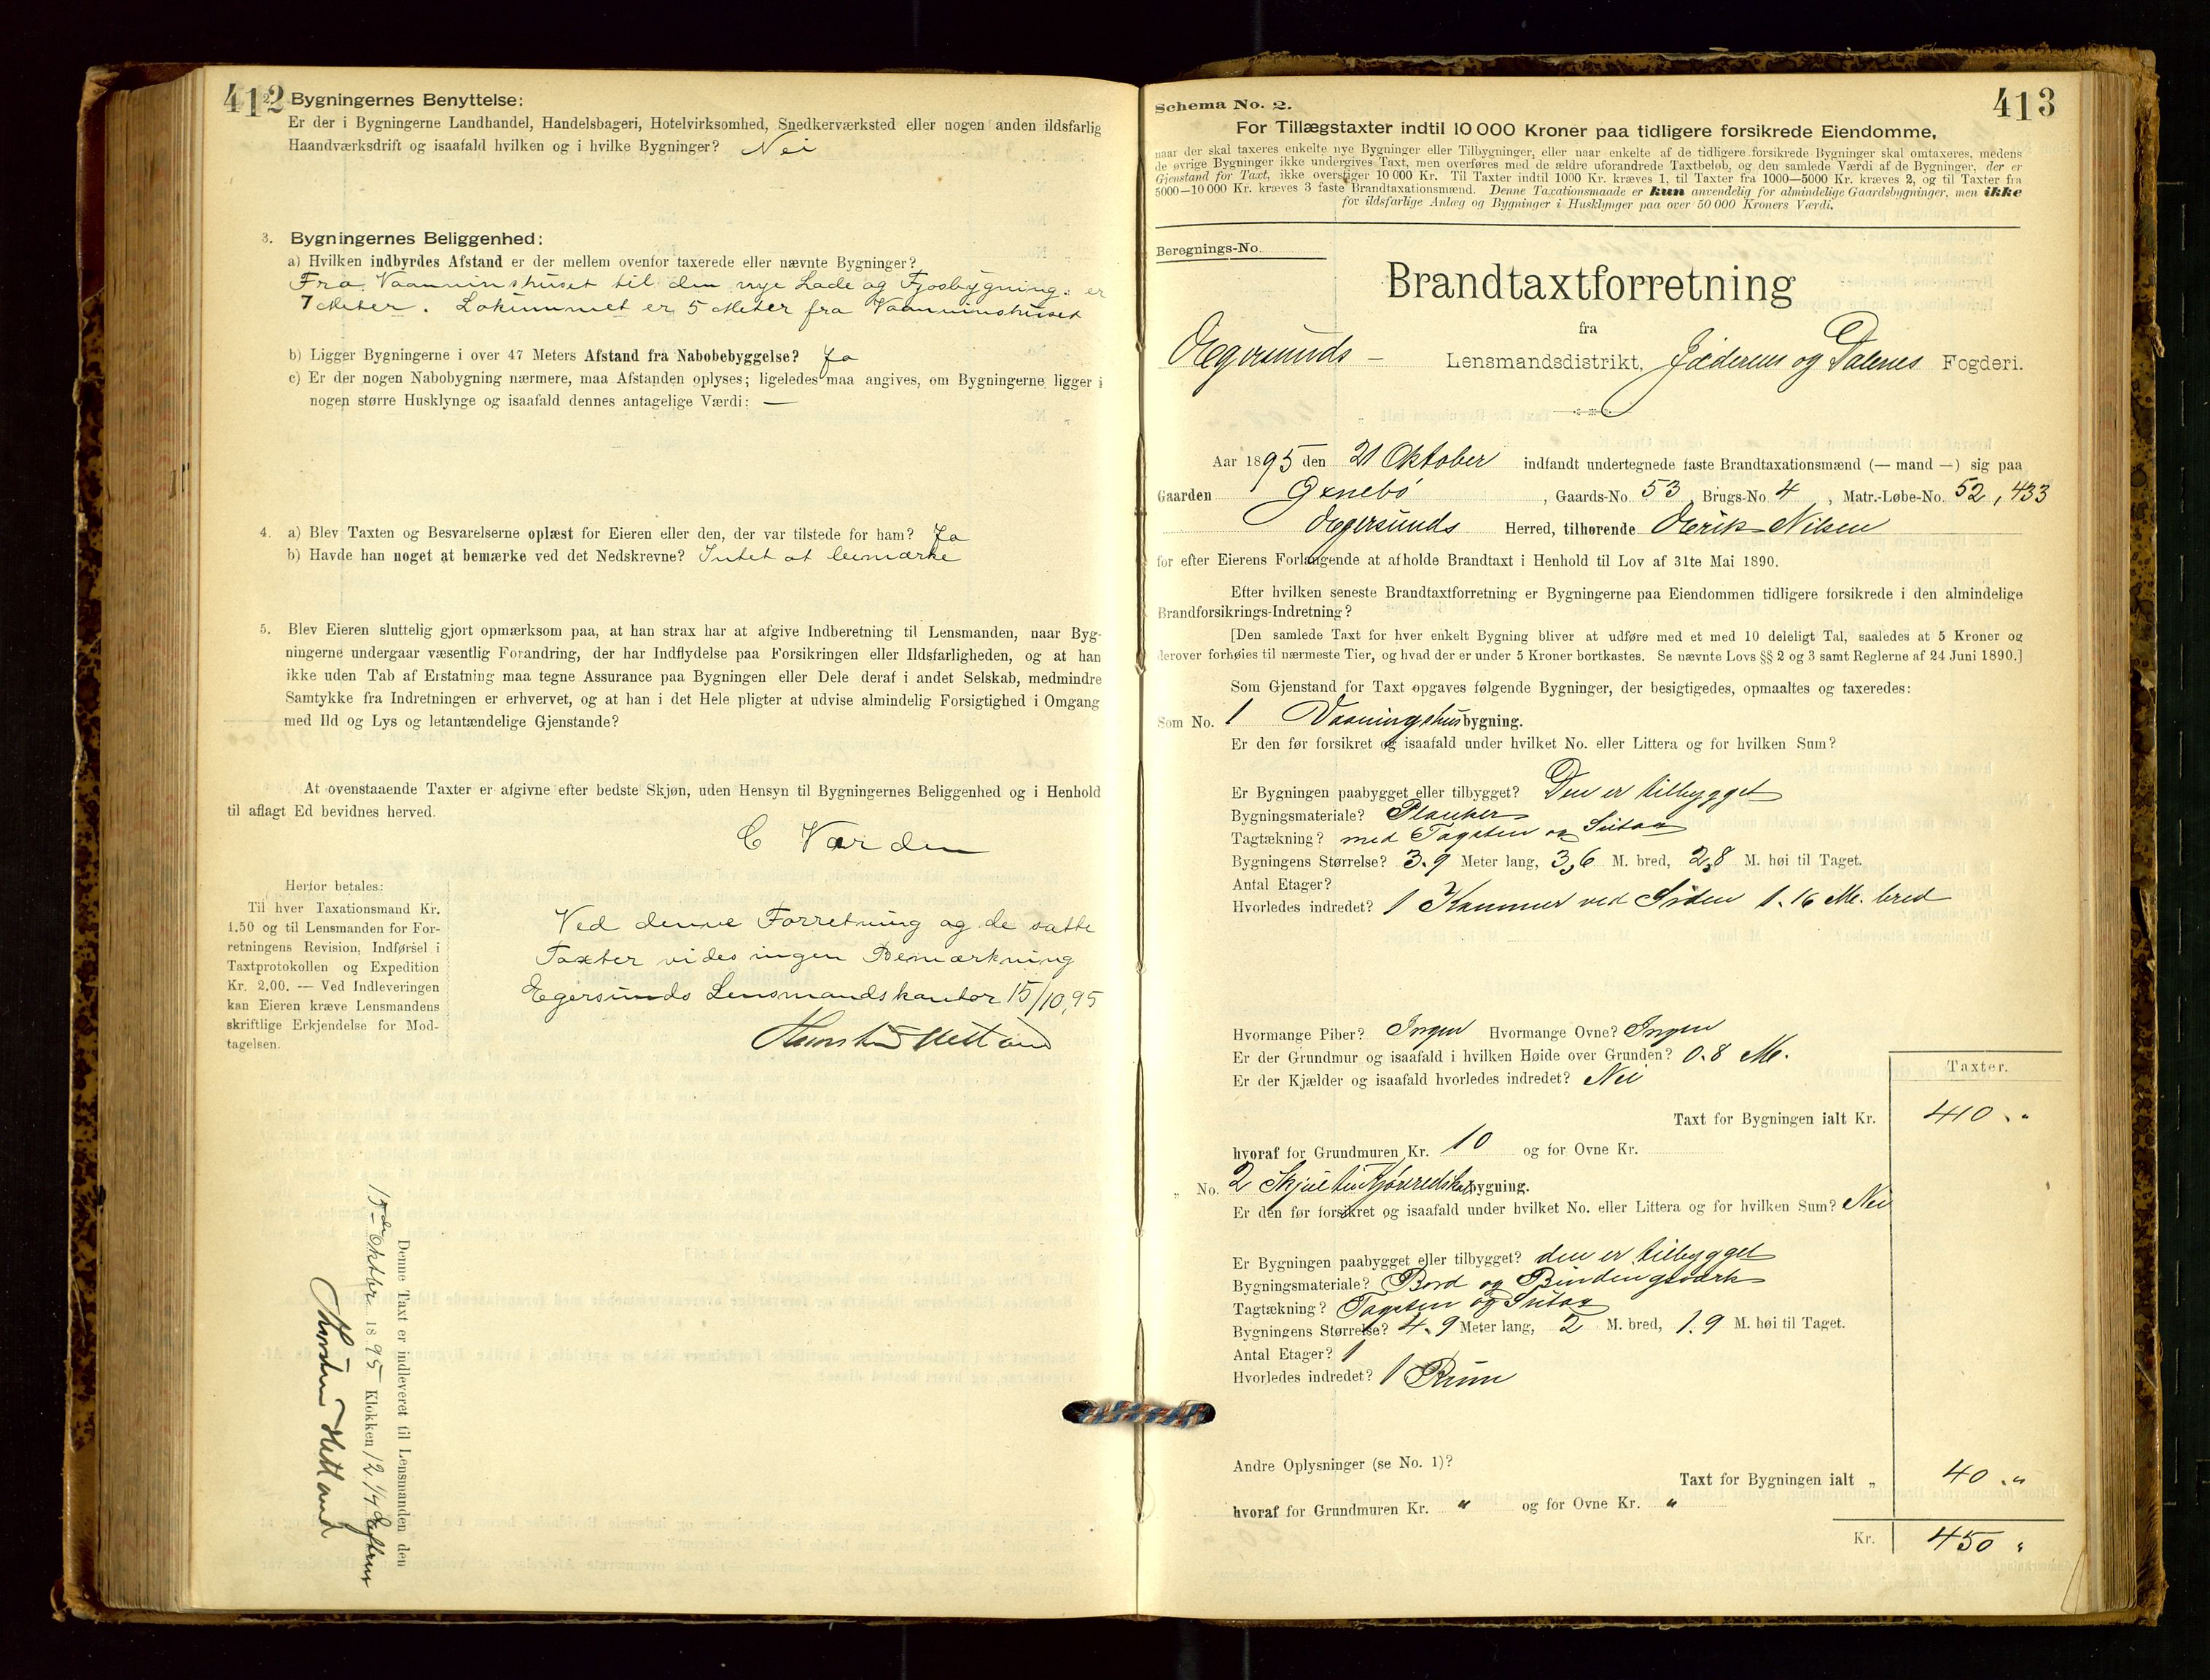 412
Bygningernes Benyttelse:
Er der i Bygningerne Landhandel, Handelsbageri, Hotelvirksomhed, Snedkerværksted eller nogen anden ildsfarlig
Haandværksdrift og isaafald hvilken og i hvilke Bygninger? Nei
3. Bygningernes Beliggenhed:
a) Hvilken indbyrdes Afstand er der mellem ovenfor taxerede eller nævnte Bygninger?
Fra Vaanninshuset til den nye Lade og Fjosbygning er
7 Meter. Lokummet er 5 Meter fra Vaanninshuset
b) Ligger Bygningerne i over 47 Meters Afstand fra Nabobebyggelse? Ja
c) Er der nogen Nabobygning nærmere, maa Afstanden oplyses; ligeledes maa angives, om Bygningerne ligger i
nogen større Husklynge og isaafald dennes antagelige Værdi: —
4. a) Blev Taxten og Besvarelserne oplæst for Eieren eller den, der var tilstede for ham? Ja
b) Havde han noget at bemærke ved det Nedskrevne? Intet at bemærke
5. Blev Eieren sluttelig gjort opmærksom paa, at han strax har at afgive Indberetning til Lensmanden, naar Byg-
ningerne undergaar væsentlig Forandring, der har Indflydelse paa Forsikringen eller Ildsfarligheden, og at han
ikke uden Tab af Erstatning maa tegne Assurance paa Bygningen eller Dele deraf i andet Selskab, medmindre
Samtykke fra Indretningen er erhvervet, og at han i det Hele pligter at udvise almindelig Forsigtighed i Omgang
med Ild og Lys og letantændelige Gjenstande?
At ovenstaaende Taxter er afgivne efter bedste Skjøn, uden Hensyn til Bygningernes Beliggenhed og i Henhold
til aflagt Ed bevidnes herved.
C Varden
Herfor betales:
Til hver Taxationsmand Kr.
1.50 og til Lensmanden for For-
retningens Revision, Indførsel i
Taxtprotokollen og Expedition
Kr. 2.00. — Ved Indleveringen
kan Eieren kræve Lensmandens
skriftlige Erkjendelse for Mod-
tagelsen.
Ved denne Forretning og de satte
Taxter vides ingen Bemærkning
Egersunds Lensmandskontor 15/10, 95
Thorsten Hetland
Denne Taxt er indleveret til Lensmanden den
15de Oktber 1895 Klokken 12 1/4 Efterm
Thorsten Hetland
413
Schema No. 2.
For Tillægstaxter indtil 10 000 Kroner paa tidligere forsikrede Eiendomme,
naar der skal taxeres enkelte nye Bygninger eller Tilbygninger, eller naar enkelte af de tidligere forsikrede Bygninger skal omtaxeres, medens
de øvrige Bygninger ikke undergives Taxt, men overføres med de ældre uforandrede Taxtbeløb, og den samlede Værdi af de Bygninger, der er
Gjenstand for Taxt, ikke overstiger 10 000 Kr. Til Taxter indtil 1000 Kr. kræves 1, til Taxter fra 1000—5000 Kr. kræves 2, og til Taxter fra
5000—10 000 Kr. kræves 3 faste Brandtaxationsmænd. Denne Taxationsmaade er kun anvendelig for almindelige Gaardsbygninger, men ikke
for ildsfarlige Anlæg og Bygninger i Husklynger paa over 50 000 Kroners Værdi.
Beregnings-No.
Brandtaxtforretning
fra
Egersunds — Lensmandsdistrikt, Jæderens og Dalenes Fogderi.
Aar 1895 den 21 Oktober indfandt undertegnede faste Brandtaxationsmænd (— mand —) sig paa
Gaarden , Gaards-No. 53, Brugs-No. 4, Matr.-Løbe-No. 52, 433
Egersunds Herred, tilhørende Erik Nilsen
for efter Eierens Forlangende at afholde Brandtaxt i Henhold til Lov af 31te Mai 1890.
Efter hvilken seneste Brandtaxtforretning er Bygningerne paa Eiendommen tidligere forsikrede i den almindelige
Brandforsikrings-Indretning?
[Den samlede Taxt for hver enkelt Bygning bliver at udføre med et med 10 deleligt Tal, saaledes at 5 Kroner og
derover forhøies til nærmeste Tier, og hvad der er under 5 Kroner bortkastes. Se nævnte Lovs §§ 2 og 3 samt Reglerne af 24 Juni 1890.]
Som Gjenstand for Taxt opgaves følgende Bygninger, der besigtigedes, opmaaltes og taxeredes:
Som No. 1 Vaaningshusbygning.
Er den før forsikret og isaafald under hvilket No. eller Littera og for hvilken Sum?
Er Bygningen paabygget eller tilbygget? Den er tilbygget
Bygningsmateriale? Planker
Tagtækning? med Tagsten og Sutag
Bygningens Størrelse? 3.9 Meter lang, 3,6 M. bred, 2,8 M. høi til Taget.
Antal Etager?
Hvorledes indredet? 1 Kammer ved Siden 1.16 Me. bred
Hvormange Piber? Ingen Hvormange Ovne? Ingen
Er der Grundmur og isaafald i hvilken Høide over Grunden? 0.8 Me.
Er der Kjælder og isaafald hvorledes indredet? Nei
Taxter.
Taxt for Bygningen ialt Kr. 410 "
hvoraf for Grundmuren Kr. 10 og for Ovne Kr.
" No. 2 bygning.
Er den før forsikret og isaafald under hvilket No. eller Littera og for hvilken Sum? Nei
Er Bygningen paabygget eller tilbygget? den er tilbygget
Bygningsmateriale? Bord og Bindingsværk
Tagtækning? Tagsten og Sutag
Bygningens Størrelse? 4.9 Meter lang, 2 M. bred, 1.9 M. høi til Taget.
Antal Etager? 1
Hvorledes indredet? 1 Rum
Andre Oplysninger (se No. 1)?
Taxt for Bygningen ialt " 40 "
hvoraf for Grundmuren Kr. " og for Ovne Kr. "
Kr. 450 "